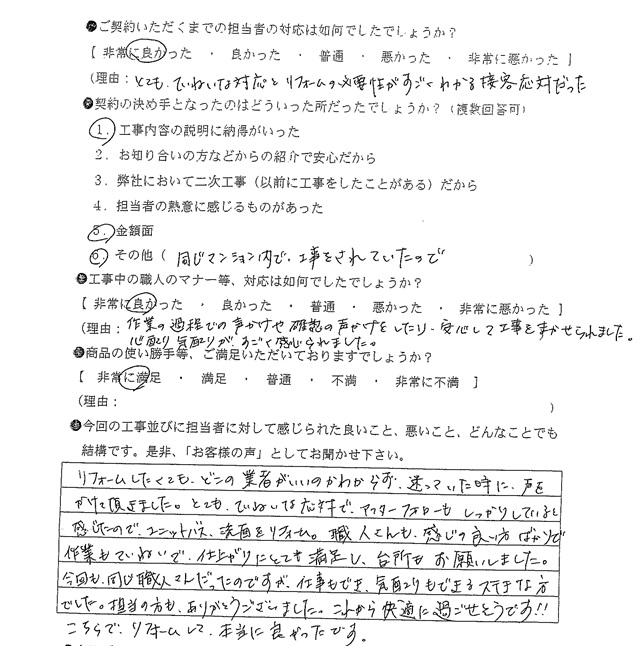 ご契約いただくまでの担当者の対応は如何でしたでしょうか?
[ 非常に良かった ・ 良かった ・ 普通 ・ 悪かった ・ 非常に悪かった ]
(理由: とても、ていねいな対応とリフォームの必要性がすごくわかる接客応対だった
契約の決め手となったのはどういった所だったでしょうか?(複数回答可)
1. 工事内容の説明に納得がいった
2. お知り合いの方などからの紹介で安心だから
3. 弊社において二次工事(以前に工事をしたことがある)だから
4. 担当者の熱意に感じるものがあった
5. 金額面
6. その他( 同じマンション内で、工事をされていたので )
工事中の職人のマナー等、対応は如何でしたでしょうか?
[ 非常に良かった ・ 良かった ・ 普通 ・ 悪かった ・ 非常に悪かった ]
(理由: 作業の過程での声かけや確認の声かけをしたり、安心して工事をまかせられました。
心配り気配りが、すごく感じられました。
商品の使い勝手等、ご満足いただいておりますでしょうか?
[ 非常に満足 ・ 満足 ・ 普通 ・ 不満 ・ 非常に不満 ]
(理由: )
今回の工事並びに担当者に対して感じられた良いこと、悪いこと、どんなことでも
結構です。是非、「お客様の声」としてお聞かせ下さい。
リフォームしたくても、どこの業者がいいのかわからず、迷っていた時に、声を
かけて頂きました。とても、ていねいな応対で、アフターフォローもしっかりしていると
感じたので、ユニットバス、洗面をリフォーム。職人さんも、感じの良い方ばかりで
作業もていねいで、仕上がりにとても満足し、台所もお願いしました。
今回も、同じ職人さんだったのですが、仕事もでき、気配りもできるステキな方
でした。担当の方も、ありがとうございました。これから快適に過ごせそうです!!
こちらで、リフォームして、本当に良かったです。